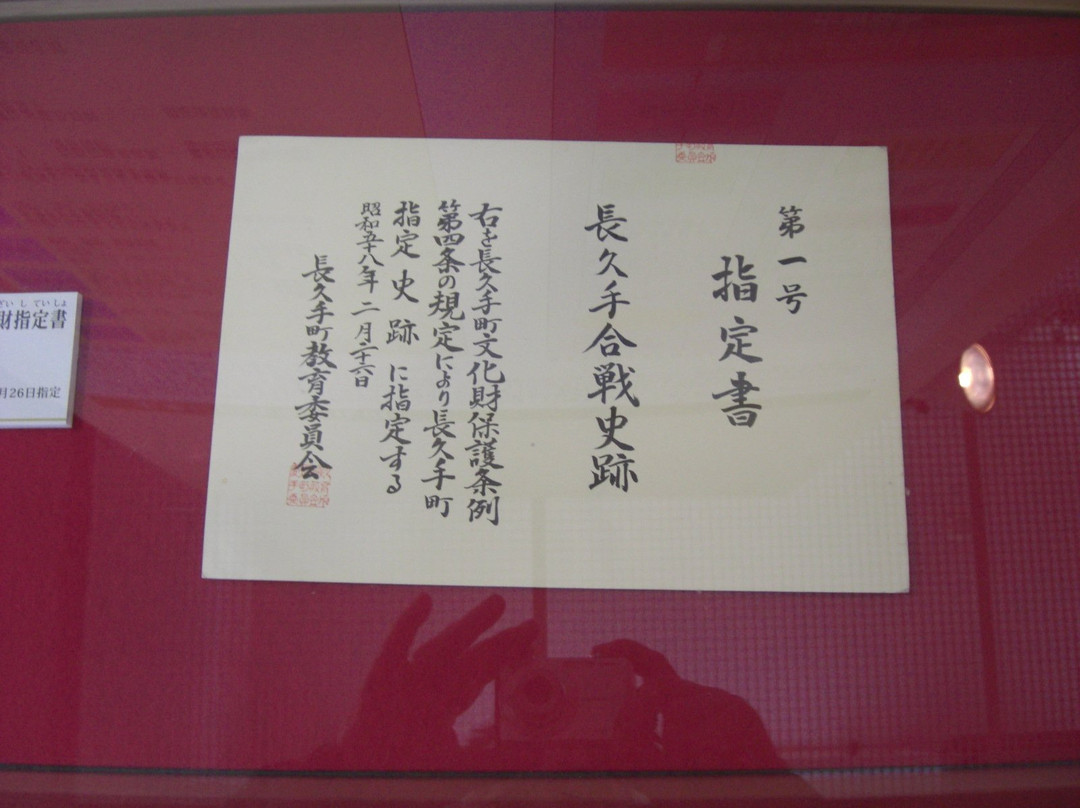 第一号
指定書
長久手合戦史跡
右を長久手町文化財保護条例
第四条の規定により長久手町
指定史跡に指定する
昭和五十八年二月二十六日
長久手町教育委員会
ざいしていしょ
財指定書
月26日指定